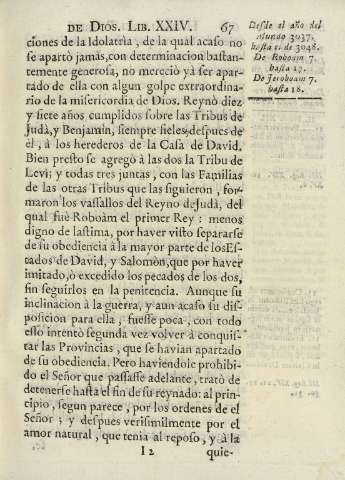 DE DIOS. LIB. XXIV. 67
ciones de la Idolatria, de la qual acaso no
se apartò jamàs, con determinacion bastan-
temente generosa, no mereciò yà ser apar-
tado de ella con algun golpe extraordina-
rio de la misericordia de Dios. Reynò diez
y siete años cumplidos sobre las Tribus de
Judà, y Benjamin, siempre fieles, despues de
èl, à los herederos de la Casa de David.
Bien presto se agregò à las dos la Tribu de
Levi; y todas tres juntas, con las Familias
de las otras Tribus que las siguieron, for-
maron los vassallos del Reyno de Judà, del
qual fuè Roboàm el primer Rey: menos
digno de lastima, por haver visto separarse
de su obediencia à la mayor parte de los Es-
tados de David, y Salomòn, que por haver
imitado, ò excedido los pecados de los dos,
sin seguirlos en la penitencia. Aunque su
inclinacion à la guerra, y aun acaso su dis-
posicion para ella, fuesse poca, con todo
esso intentò segunda vez volver à conquis-
tar las Provincias, que se havian apartado
de su obediencia. Pero haviendole prohibi-
do el Señor que passasse adelante, tratò de
detenerse hasta el fin de su reynado: al prin-
cipio, segun parece, por los ordenes de el
Señor; y despues verisimilmente por el
amor natural, que tenia al reposo, y à la
I 2 quie-
Desde el año del
Mundo 3037.
hasta el de 3048.
De Roboam 7.
hasta 17.
De Jeroboam 7.
hasta 18.